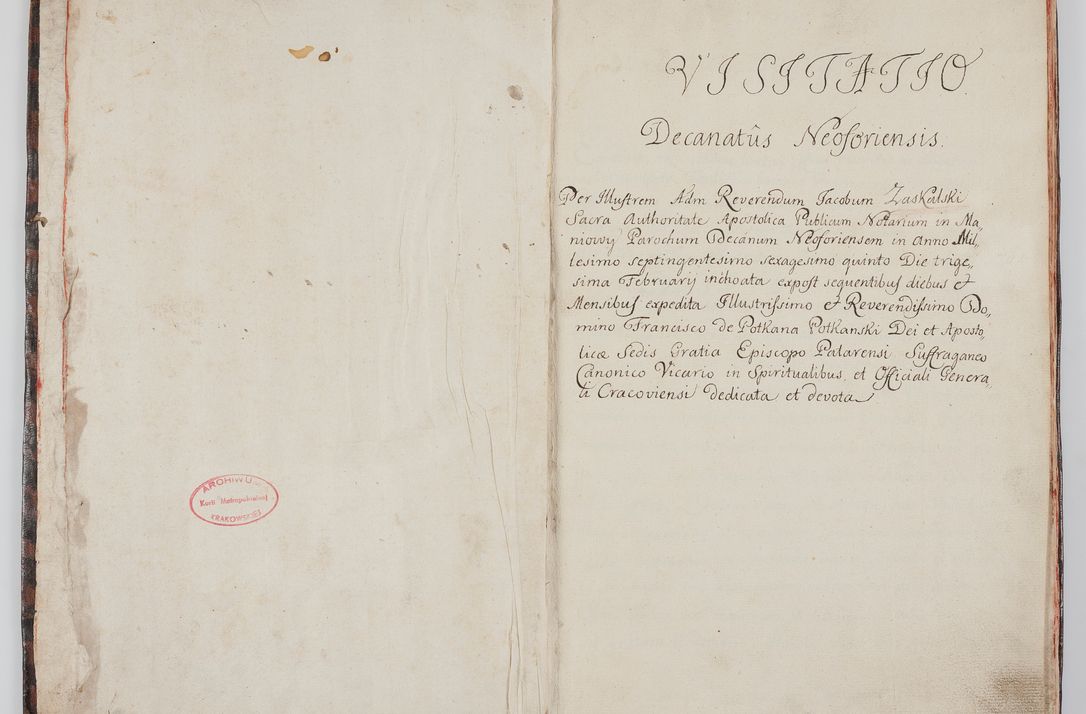 ARCHIWUM
Kurii Metropolitalnej
KRAKOWSKIEJ
VISITATIO
Decanatûs Neoforiensis.
Per Illustrem Adm Reverendum Jacobum Zaskalski
Sacra Authoritate Apostolica Publicum Notarium in Ma,,
niowy Parochum Decanum Neoforiensem in Anno Mil,,
lesimo septingentesimo sexagesimo quinto Die trige,,
sima Februarij inchoata expost sequentibus diebus et
Mensibus expedita Illustrissimo et Reverendissimo Do,,
mino Francisco de Potkana Potkanski Dei et Aposto,,
licæ Sedis Gratia Episcopo Patarensi Suffraganeo
Canonico Vicario in Spiritualibus et Officiali Genera,,
li Cracoviensi Dedicata et devota